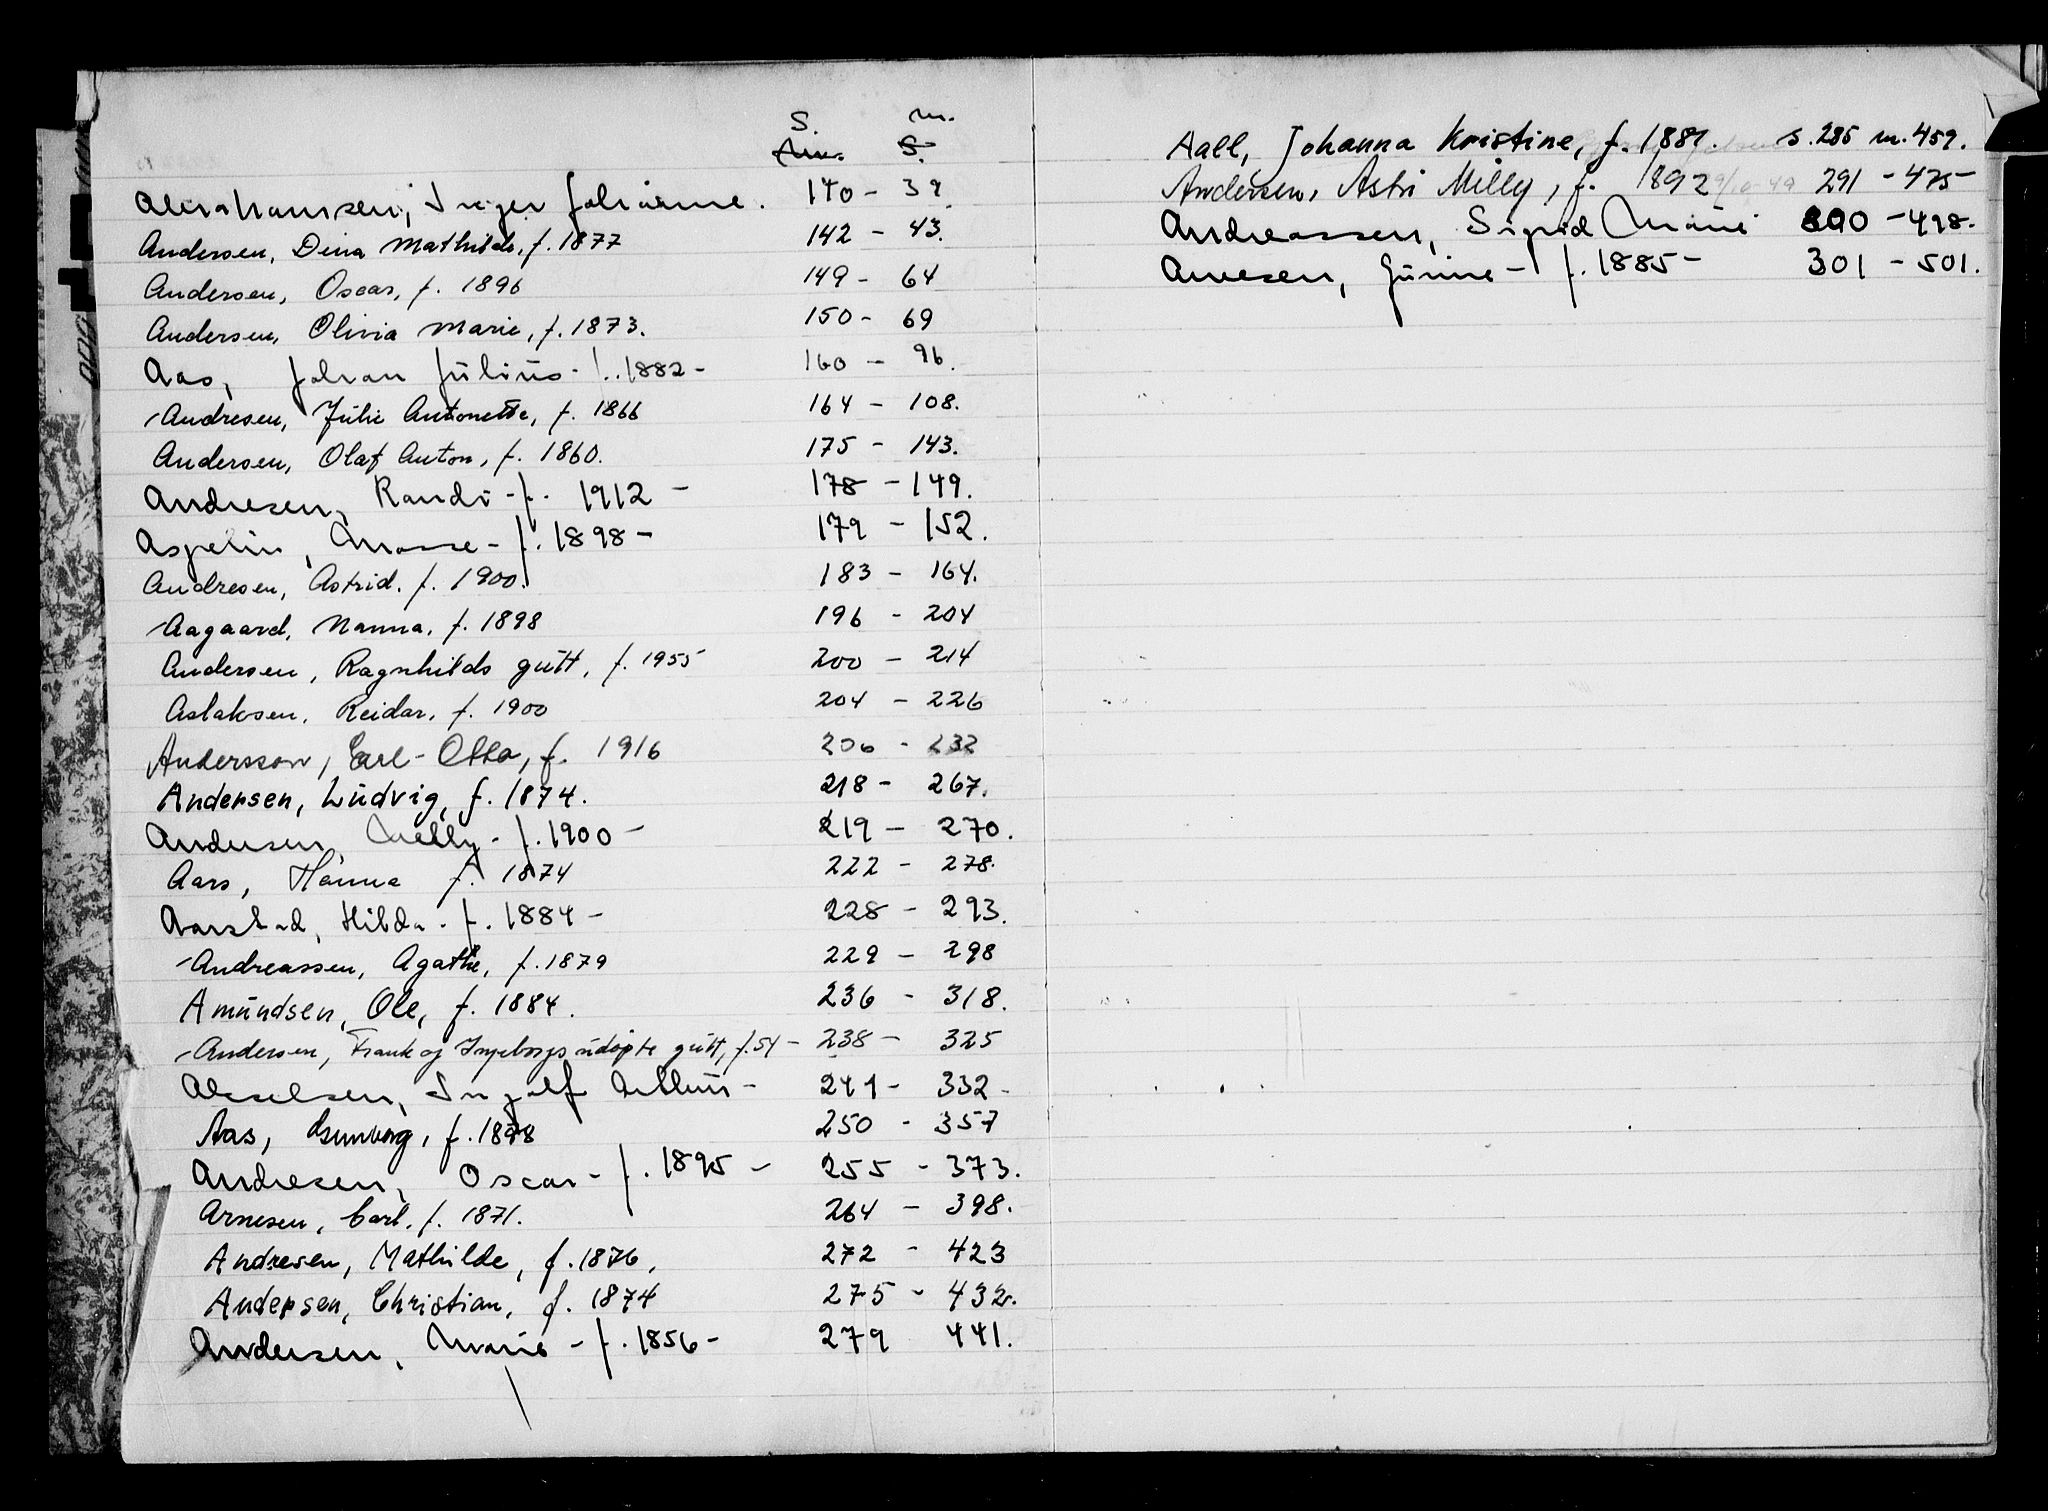 S. m.
Nr. S.
Abrahamsen, Inger Johanne. 140 - 39.
Andersen, Dina Mathilde, f. 1877 142 - 43.
Andersen, Oscar, f. 1896 149 - 64
Andersen, Olivia Marie, f. 1873. 150 - 69
Aas, Johan Julius - f. 1882 - 160 - 96.
Andresen, Julie Antonette, f. 1866 164 - 108.
Andersen, Olaf Anton, f. 1860. 175 - 143.
Andresen, Randi - f. 1912 - 178 - 149.
Aspelin, - f. 1898 - 179 - 152.
Andresen, Astrid. f. 1900. 183 - 164.
Aagaard, Nanna, f. 1898 196 - 204
Andersen, Ragnhilds gutt, f. 1955 200 - 214
Aslaksen, Reidar, f. 1900 204 - 226
Andersson, Carl-Otto, f. 1916 206 - 232
Andersen, Ludvig, f. 1874. 218 - 267.
Andersen, Melly - f. 1900 - 219 - 270.
Aars, Hanna f. 1874 222 - 278.
Aarstad, Hilda - f. 1884 - 228 - 293.
Andreassen, Agathe, f. 1879 229 - 298
Amundsen, Ole, f. 1884. 236 - 318.
Andersen, Frank og Ingeborgs udøpte gutt, f. 54 - 238 - 325
Akselsen, Ingolf - 241 - 332 -
Aas, Gunvorg, f. 1898 250 - 357
Andresen, Oscar - f. 1895 - 255 - 373.
Arnesen, Carl, f. 1871. 264 - 398.
Andresen, Mathilde, f. 1876. 272 - 423
Andersen, Christian, f. 1874 275 - 432.
Andersen, Marie - f. 1856 - 279 441.
Aall, Johanna Kristine, f. 1881. s. 285 m. 459.
Andersen, Astri Milly, f. 1892 291 - 475 -
Andreassen, Sigrid Marie 300 - 498.
Arnesen, Gunine - f. 1885 - 301 - 501.